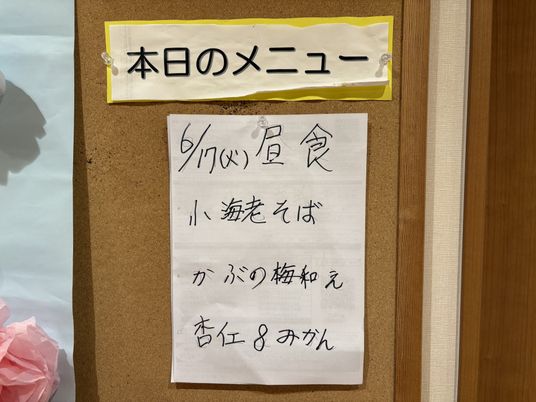 本日のメニュー
6/17(火)昼食
小海老そば
かぶの梅和え
杏仁&みかん